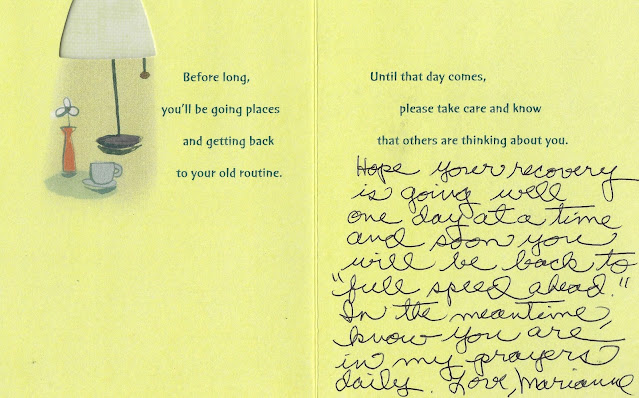 Before long,
you'll be going places
and getting back
to your old routine.
Until that day comes,
please take care and know
that others are thinking about you.
Hope your recovery
is going well
one day at a time
and soon you
will be back to
"full speed ahead."
In the meantime,
know you are
in my prayers
daily. Love, Marianne